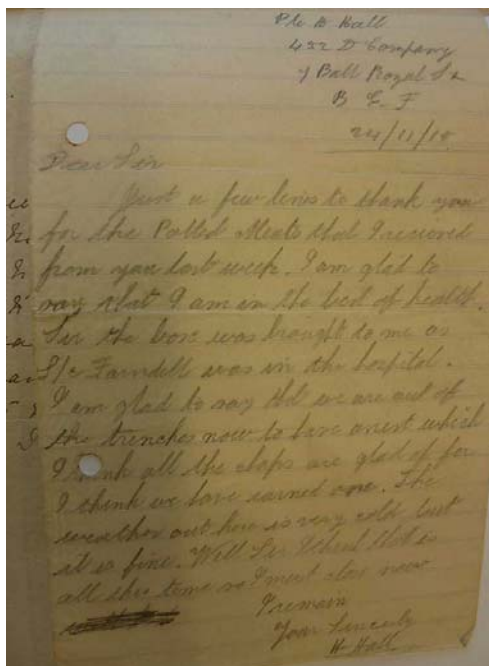 Pte H Hall
452 D Company
7 Batt Royal Sx
B E F
24/11/15
Dear Sir
Just a few lines to thank you
for the Potted Meats that I recieved
from you last week. I am glad to
say that I am in the best of health.
Sir the box was brought to me as
L/c Farndell was in the hospital.
I am glad to say that we are out of
the trenches now to have arest which
I think all the chaps are glad of for
I think we have earned one. The
weather out here is very cold but
it is fine. Well Sir I think that is
all this time so I must close now
I remain
Your Sincerly
H Hall